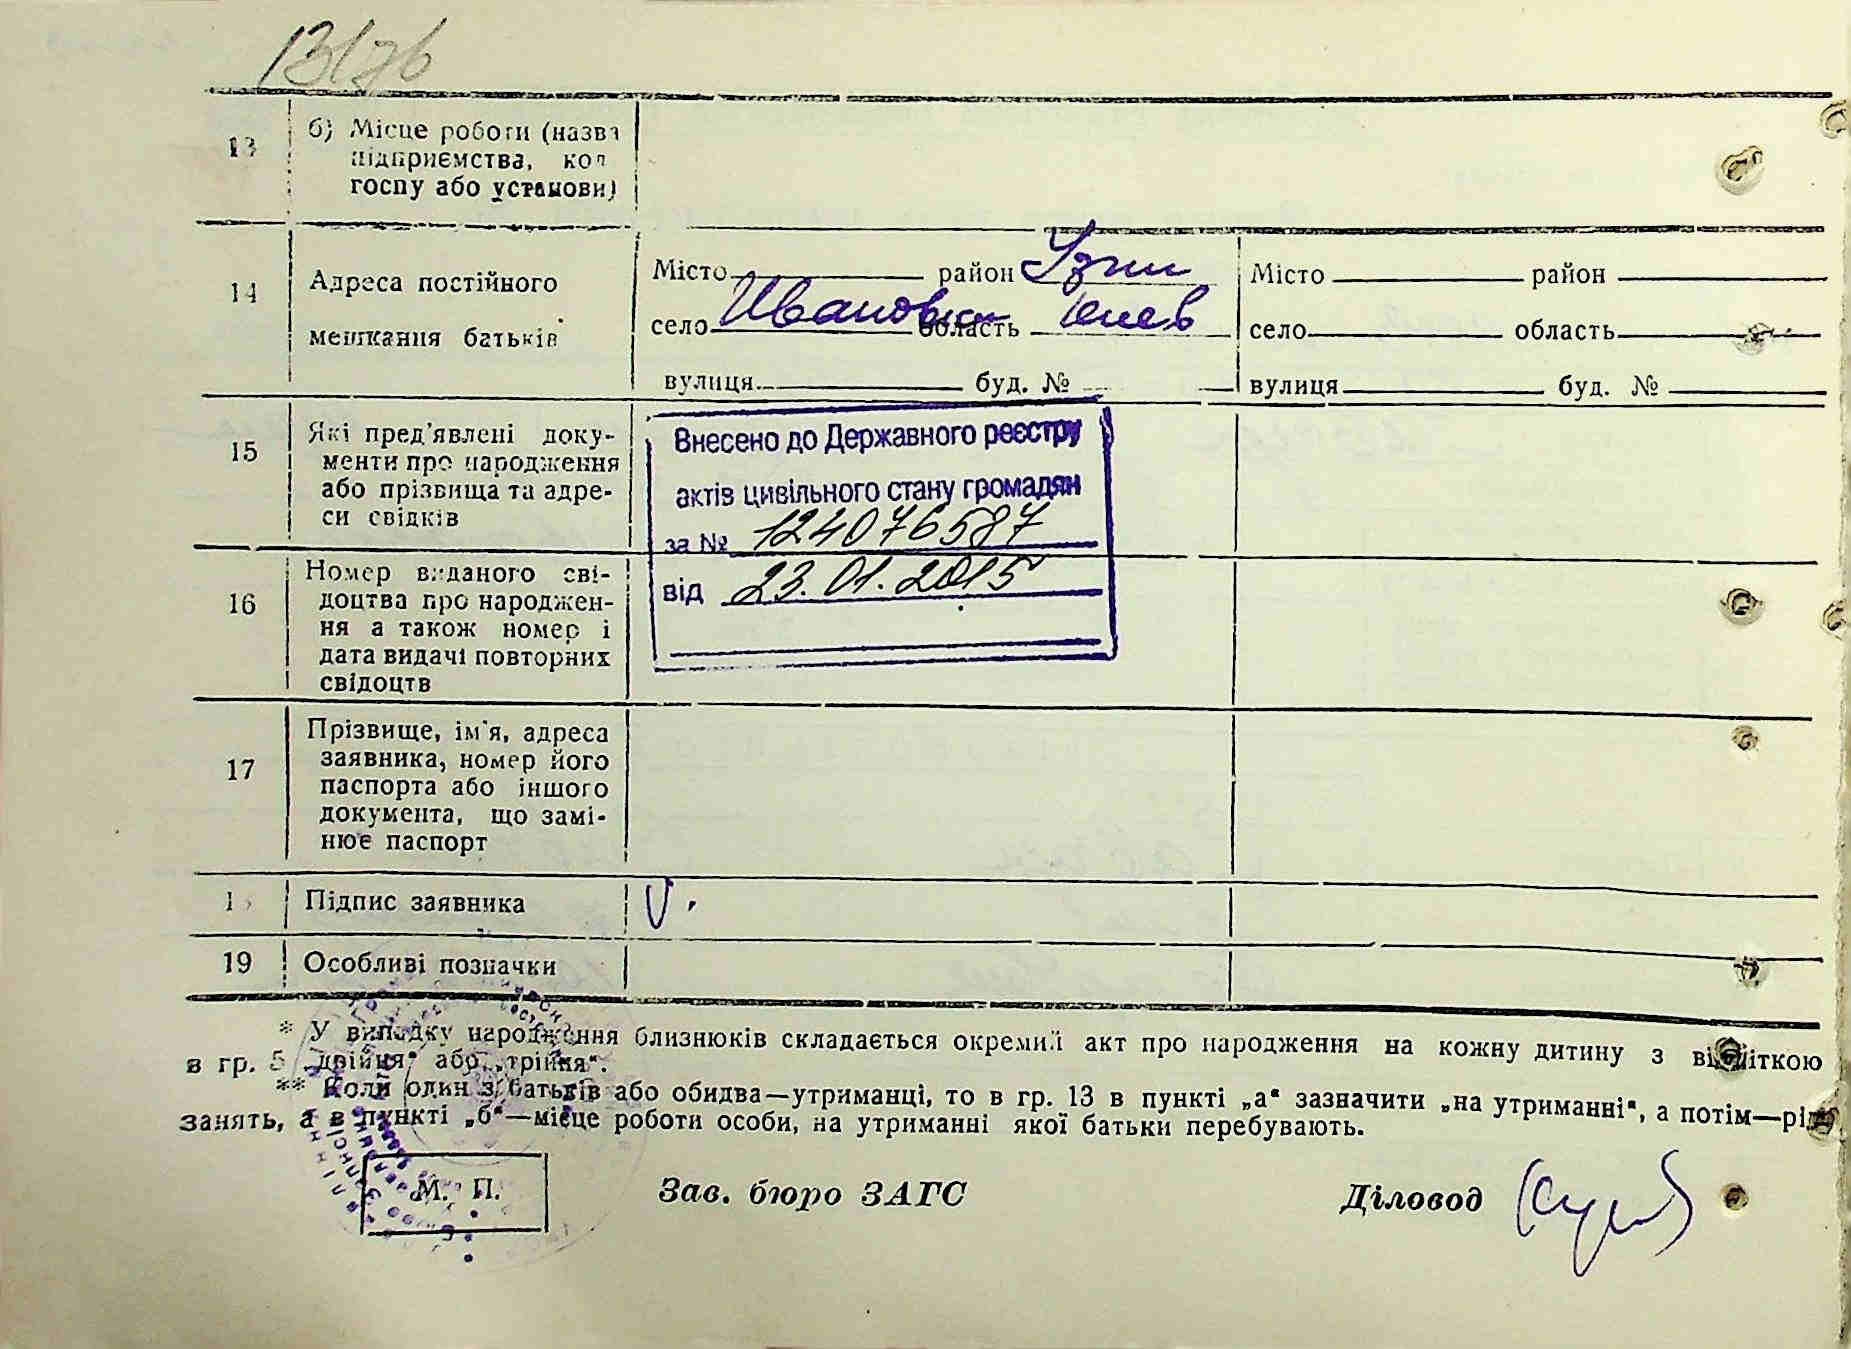 13
б) Місце роботи (назва
підприємства, кол
госпу або установи)
14
Адреса постійного
мешкання батьків
Місто район Узин
село Ивановка область Киев
вулиця буд. №
Місто район
село область
вулиця буд. №
15
Які пред'явлені доку-
менти про народження
або прізвища та адре-
си свідків
Внесено до Державного реєстру
актів цивільного стану громадян
за № 124076587
від 23.01.2015
16
Номер виданого сві-
доцтва про народжен-
ня а також номер і
дата видачі повторних
свідоцтв
17
Прізвище, ім'я, адреса
заявника, номер його
паспорта або іншого
документа, що замі-
нює паспорт
Підпис заявника
19
Особливі позначки
* У випадку народження близнюків складається окремий акт про народження на кожну дитину з відміткою
в гр. 5 „двійня“ або „трійня“.
** Коли один з батьків або обидва—утриманці, то в гр. 13 в пункті „а“ зазначити „на утриманні“, а потім—рід
занять, а в пункті „б“—місце роботи особи, на утриманні якої батьки перебувають.
М. П.
Зав. бюро ЗАГС
Діловод